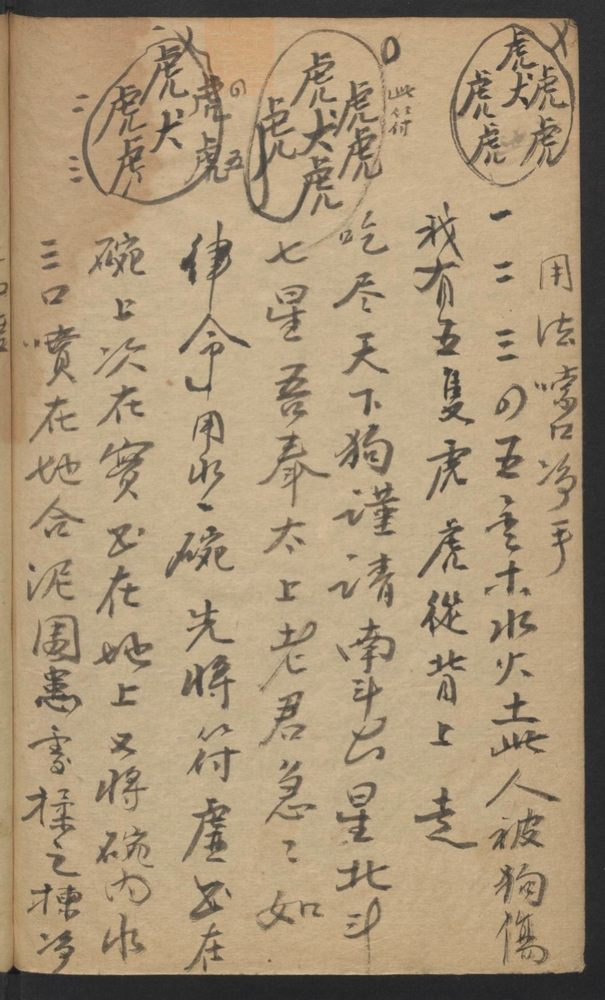 虎
虎 犬 虎
虎 虎
此符
虎 虎
虎 犬 虎
虎
の
虎 虎
虎 犬 虎 五
二 虎
三
用法嗽口净手
一二三の五金木水火土此人被狗傷
我有五隻虎虎從背上走
吃尽天下狗謹請南斗六星北斗
七星吾奉太上老君急〻如
律令用水一碗先將符虛书在
碗上次在實书在地上又將碗内水
三口噴在地合泥圍患處揉之揀净